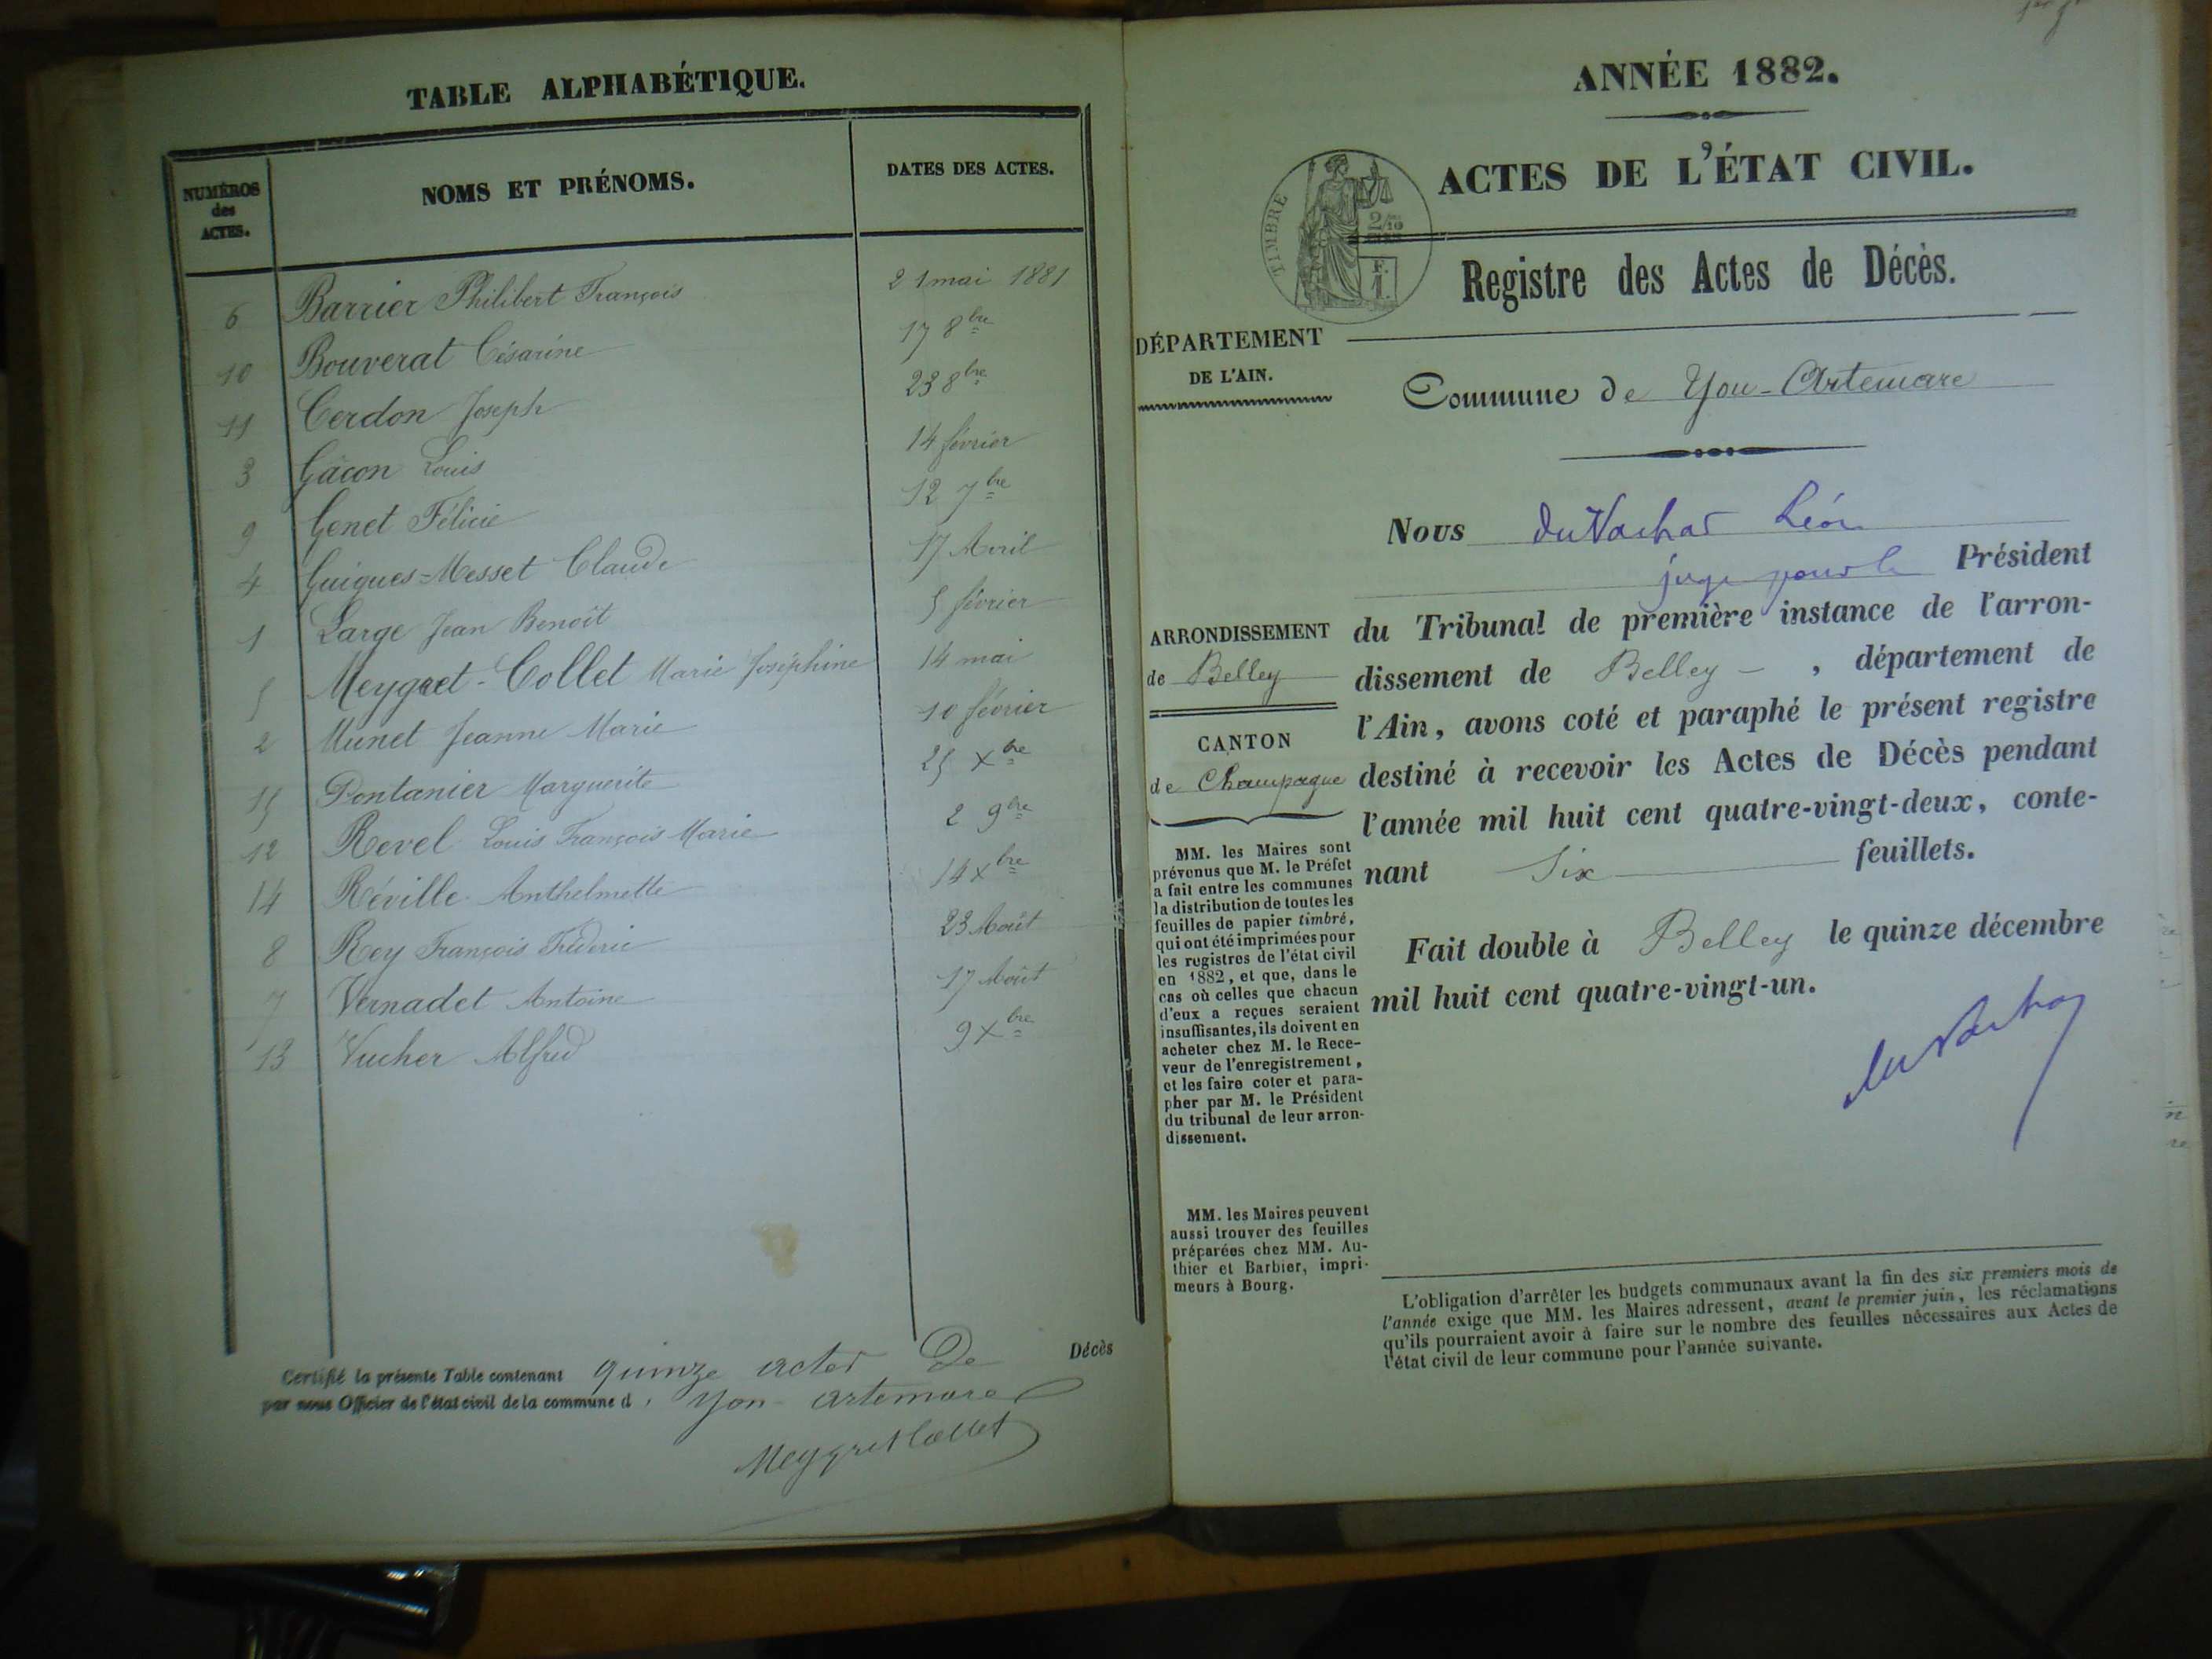 TABLE ALPHABÉTIQUE.
NUMÉROS des ACTES. NOMS ET PRÉNOMS. DATES DES ACTES.
6 Barrier Philibert François 21 mai 1881
10 Bouverat Césarine 17 8bre
11 Cerdon Joseph 23 8bre
3 Gacon Louis 14 février
9 Genet Félicie 12 7bre
4 Guigues=Messet Claude 17 Avril
1 Large Jean Benoit 5 février
5 Meygret-Collet Marie Joséphine 14 mai
2 Munet Jeanne Marie 10 février
15 Pontanier Marguerite 25 Xbre
12 Revel Louis François Marie 2 9bre
14 Réville Anthelmette 14 Xbre
8 Rey François Fréderic 23 Août
7 Vernadet Antoine 17 Août
13 Vucher Alfred 9 Xbre
Certifié la présente Table contenant quinze actes De Décès
par nous Officier de l'état civil de la commune d Yon-Artemare
Meygret Collet
ANNÉE 1882.
ACTES DE L'ÉTAT CIVIL.
TIMBRE
2/10
F.
1.
Registre des Actes de Décès.
DÉPARTEMENT
DE L'AIN.
Commune de Yon-Artemare
Nous du Nachat Léon
juge pour le Président
du Tribunal de première instance de l'arron-
dissement de Belley, département de
l'Ain, avons coté et paraphé le présent registre
destiné à recevoir les Actes de Décès pendant
l'année mil huit cent quatre-vingt-deux, conte-
nant Six feuillets.
Fait double à Belley le quinze décembre
mil huit cent quatre-vingt-un.
ARRONDISSEMENT
de Belley
CANTON
de Champagne
MM. les Maires sont
prévenus que M. le Préfet
a fait entre les communes
la distribution de toutes les
feuilles de papier timbré,
qui ont été imprimées pour
les registres de l'état civil
en 1882, et que, dans le
cas où celles que chacun
d'eux a reçues seraient
insuffisantes, ils doivent en
acheter chez M. le Rece-
veur de l'enregistrement,
et les faire coter et para-
pher par M. le Président
du tribunal de leur arron-
dissement.
MM. les Maires peuvent
aussi trouver des feuilles
préparées chez MM. Au-
thier et Barbier, impri-
meurs à Bourg.
L'obligation d'arrêter les budgets communaux avant la fin des six premiers mois de
l'année exige que MM. les Maires adressent, avant le premier juin, les réclamations
qu'ils pourraient avoir à faire sur le nombre des feuilles nécessaires aux Actes de
l'état civil de leur commune pour l'année suivante.